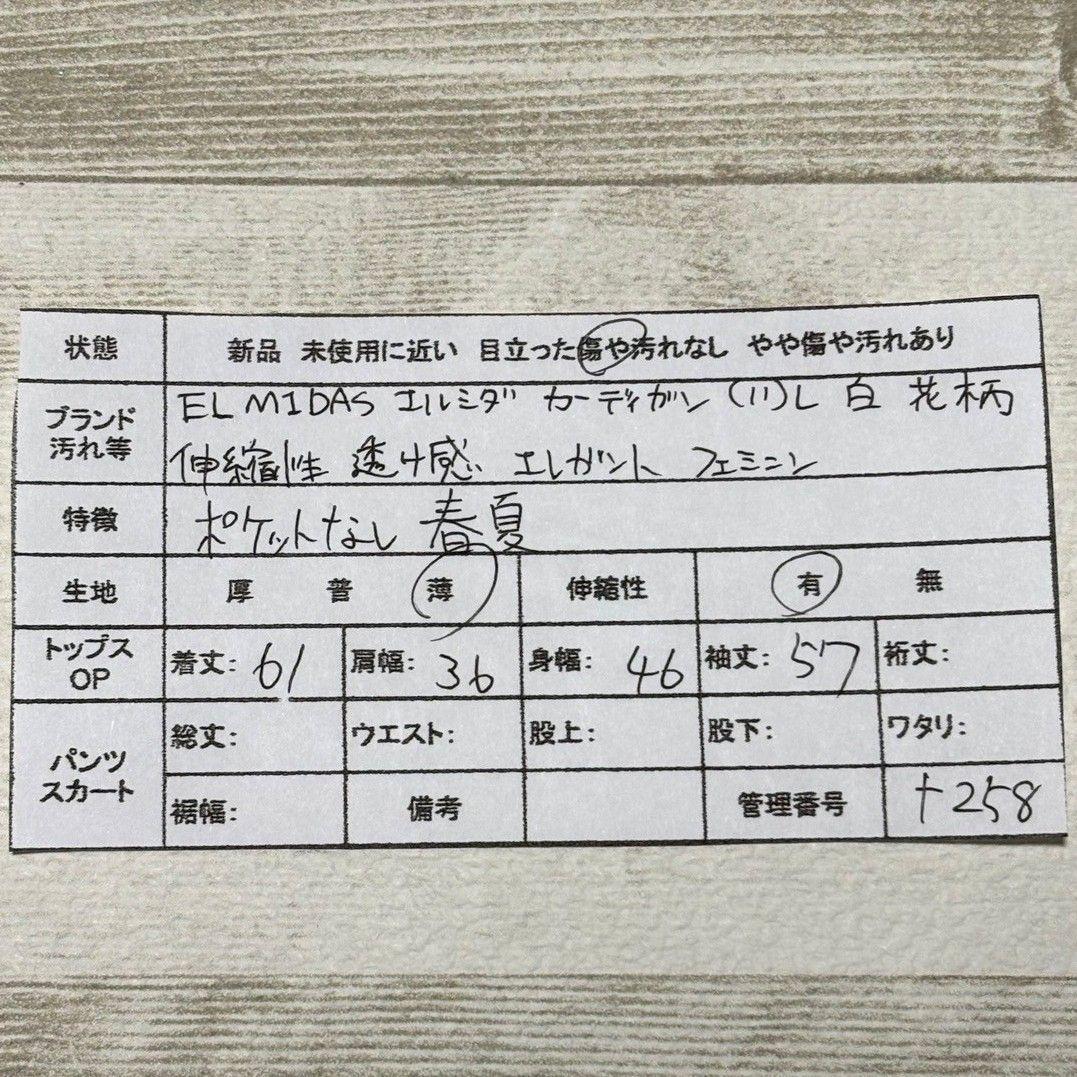 状態 新品 未使用に近い 目立った傷や汚れなし やや傷や汚れあり
ブランド 汚れ等 EL MIDAS エルミダ カーディガン (11)L 白 花柄
伸縮性 透け感 エレガント フェミニン
特徴 ポケットなし 春夏
生地 厚 普 薄 伸縮性 有 無
トップス OP 着丈: 61 肩幅: 36 身幅: 46 袖丈: 57 裄丈:
パンツ スカート 総丈: ウエスト: 股上: 股下: ワタリ:
裾幅: 備考 管理番号 +258